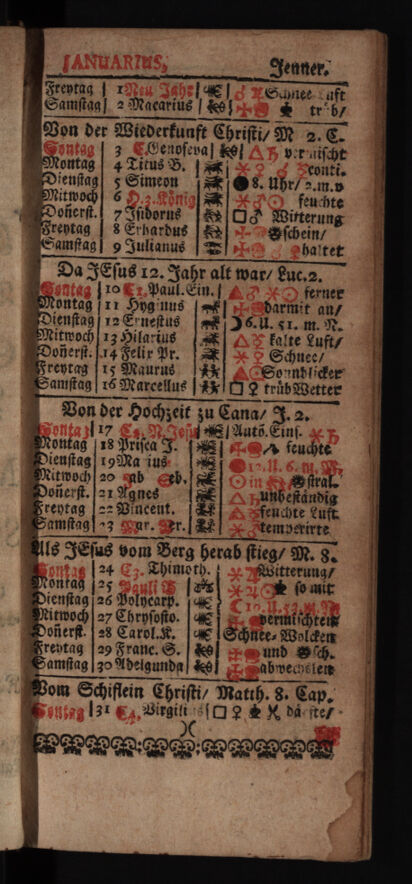 JANUARIUS, Jenner.
Freytag 1 Neu Jahr ♂ Schnee
Samstag 2 Macarius
Von der Wiederkunft Christi/ M 2. C.
Sontag 3 C. Genofeva △ ♄ vermischt
Montag 4 Titus B. ♀ ♂ conti.
Dienstag 5 Simeon ● 8. Uhr/ 2.m.v
Mitwoch 6 H. 3. König ♂ ☉ feuchte
Doñerst. 7 Isidorus □ ♂ Witterung
Freytag 8 Erhardus schein/
Samstag 9 Julianus ♂ ♀ haltet
Da JEsus 12. Jahr alt war/ Luc. 2.
Sontag 10 C1. Paul. Ein. △ ♂ ☉ ferner
Montag 11 Hyginus darmit an/
Dienstag 12 Ernestus ☽ 6. U. 51. m. N.
Mitwoch 13 Hilarius △ kalte Luft/
Doñerst. 14 Felix Pr. ♀ Schnee/
Freytag 15 Maurus △ Sonnblicker
Samstag 16 Marcellus □ ♀ trüb Wetter
Von der Hochzeit zu Cana/ J. 2.
Sontag 17 C2. N. Jesu Antō. Eins. ♄
Montag 18 Prisca J. feuchte
Dienstag 19 Marius 12. U. 6. m.
Mitwoch 20 Fab Seb. ☉ in
Doñerst. 21 Agnes △ ♄ unbeständig
Freytag 22 Vincent. △ feuchte Luft
Samstag 23 temperirte
Als JEsus vom Berg herab stieg/ M. 8.
Sontag 24 C3. Thimoth. Witterung/
Montag 25 Pauli B so mit
Dienstag 26 Polycarp.
Mitwoch 27 Chrysosto. vermischten
Doñerst. 28 Carol. K. Schnee-Wolcken
Freytag 29 Franc. S. und
Samstag 30 Adelgunda abwechslen
Vom Schiflein Christi/ Matth. 8. Cap.
Sontag 31 C4. □ ♀